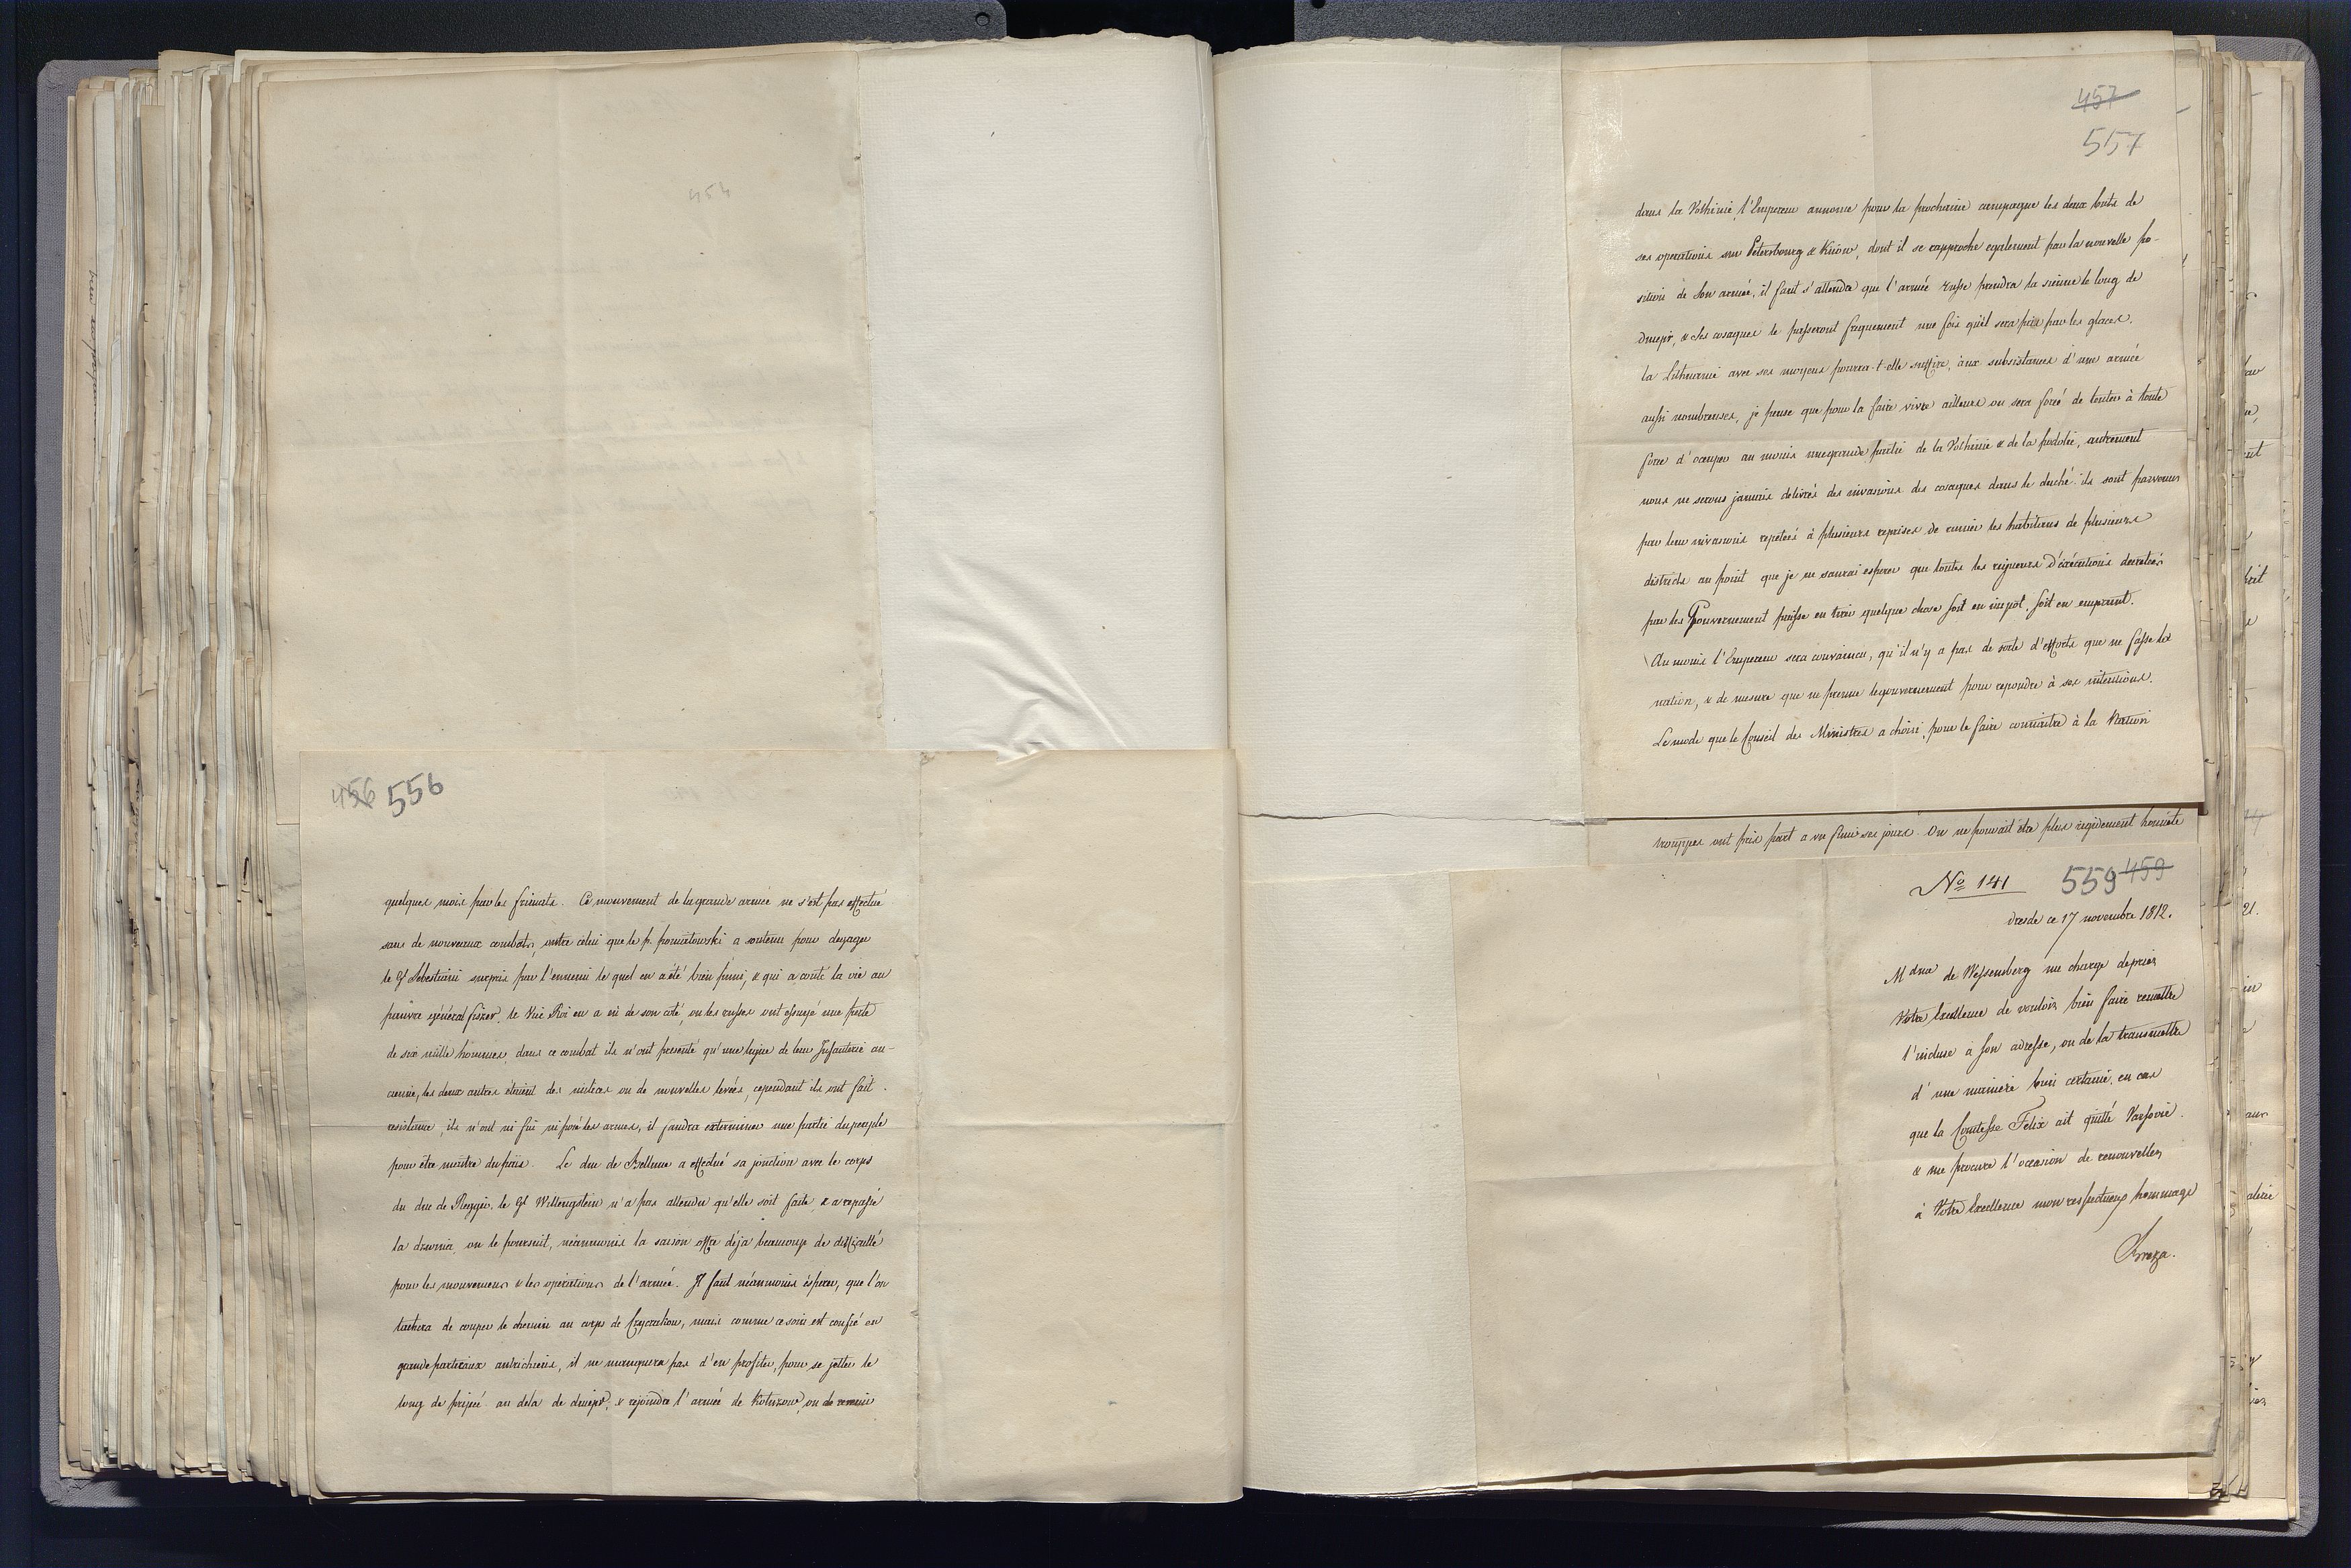 454
456 556
quelques mois par les frimats. Ce mouvement de la grande armée ne s'est pas effectué
sans de nouveaux combats, outre celui que le p. poniatowski a soutenu pour degager
le Gl Sebastiani surpris par l'ennemi le quel en a été bien puni, & qui a couté la vie au
pauvre général fiszer, le Vice Roi en a eu de son coté, ou les russes ont essuyé une perte
de six mille hommes, dans ce combat ils n'ont presenté qu'une ligne de leur Infanterie an-
cienne, les deux autres étoient des milices ou de nouvelles levées, cependant ils ont fait
resistance, ils n'ont ni fui ni posé les armes, il faudra exterminer une partie du peuple
pour être maitre du païs. Le duc de Bellune a effectué sa jonction avec le corps
du duc de Reggio, le Gl Wittengstein n'a pas attendu qu'elle soit faite, & a repassé
la dzwina, on le poursuit, néanmoins la saison offre déja beaucoup de difficulté
pour les mouvemens & les opérations de l'armée. Il faut néanmoins ésperer, que l'on
tachera de couper le chemin au corps de Czyczakow, mais comme ce soin est confié en
grande partie aux autrichiens, il ne manquera pas d'en profiter, pour se jetter le
long de pripeć au dela de dniepr, & rejoindre l'armée de Kotuzow, ou de revenir
457
557
dans la Volhinie, l'Empereur annonce pour la prochaine campagne les deux buts de
ses operations sur Petersbourg & Kiiow, dont il se rapproche egalement par la nouvelle po-
sition de son armée, il faut s'attendre que l'armée russe prendra la sienne le long de
dniepr, & les cosaques le passeront frequement une fois qu'il sera pris par les glaces.
la Lithuanie avec ses moyens pourra-t-elle suffire, aux subsistances d'une armée
aussi nombreuses, je pense que pour la faire vivre ailleurs on sera forcé de tenter à toute
force d'occuper au moins une grande partie de la Volhinie & de la podolie, autrement
nous ne serons jamais délivrés des invasions des cosaques dans le duché. ils sont parvenus
par leur invasions repetées à plusieurs reprises de ruiner les habitans de plusieurs
districts au point que je ne saurai esperer que toutes les rigueurs d'éxécutions decretées
par les Gouvernement puisse en tirer quelque chose soit en impot, soit en emprunt.
Au moins l'Empereur sera convaincu, qu'il n'y a pas de sorte d'efforts que ne fasse la
nation, & de mesure que ne prenne le gouvernement pour repondre à ses intentions.
Le mode que le Conseil des Ministres a choisi, pour le faire connaitre à la Nation
trouppes ont pris part a vu finir ses jours. On ne pouvait être plus rigidement honnête
No 141 559 459
dresde ce 17 novembre 1812.
Mdme de Wessenberg me charge de prier
Votre Excellence de vouloir bien faire remettre
l'incluse à son adresse, ou de la transmettre
d'une maniere bien certaine, en cas
que la Comtesse Félix ait quitté Varsovie.
& me procure l'occasion de renouveller
à Votre Excellence mon respectueux hommage
Breza.